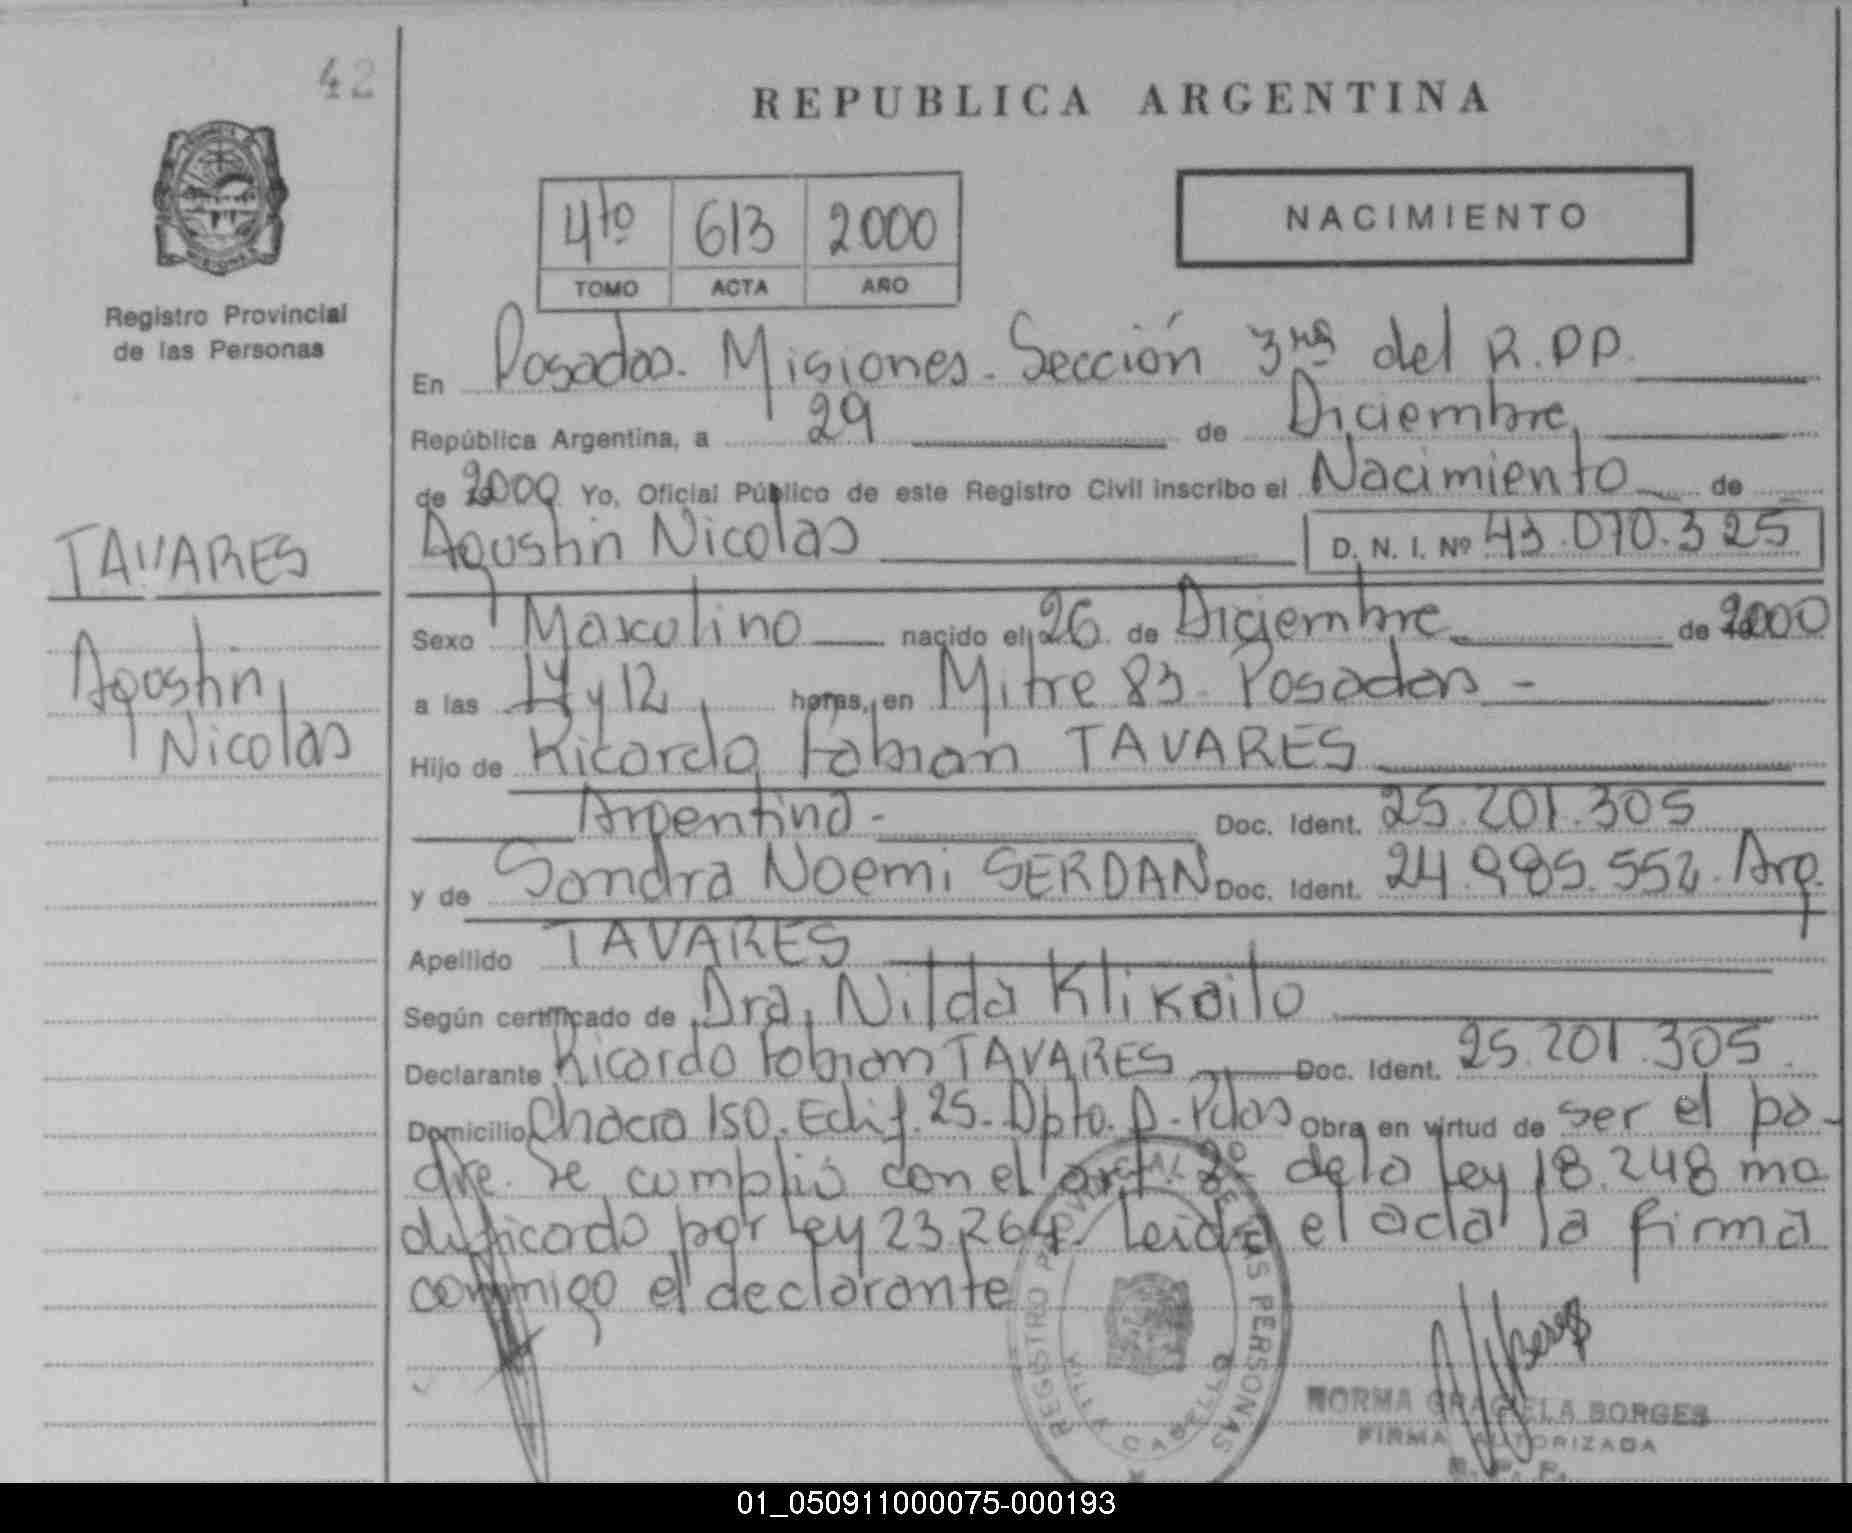 42
REPUBLICA ARGENTINA
4to 613 2000
TOMO ACTA AÑO
NACIMIENTO
Registro Provincial
de las Personas
En Posadas. Misiones. Sección 3ra del R.P.P.
República Argentina, a 29 de Diciembre
de 2000 Yo, Oficial Público de este Registro Civil inscribo el Nacimiento de
Agustin Nicolas D. N. I. Nº 43.070.325
TAVARES
Agustin
Nicolas
Sexo Masculino nacido el 26 de Diciembre de 2000
a las 14 y 12 horas, en Mitre 83. Posadas -
Hijo de Ricardo Fabian TAVARES
Argentina - Doc. Ident. 25.201.305
y de Sandra Noemi SERDAN Doc. Ident. 24.985.552. Arg.
Apellido TAVARES
Según certificado de Dra. Nilda Klikailo
Declarante Ricardo Fabian TAVARES Doc. Ident. 25.201.305
Domicilio Chacra 150. Edif. 25. Dpto. D. Pdas Obra en virtud de ser el pa-
dre. Se cumplió con el art 2º de la Ley 18.248 mo
dificado por Ley 23264. Leida el acta la firma
conmigo el declarante
REGISTRO PROVINCIAL DE LAS PERSONAS
VILLA CABELLO
NORMA GRACIELA BORGES
FIRMA AUTORIZADA
R. P. P.
01_050911000075-000193